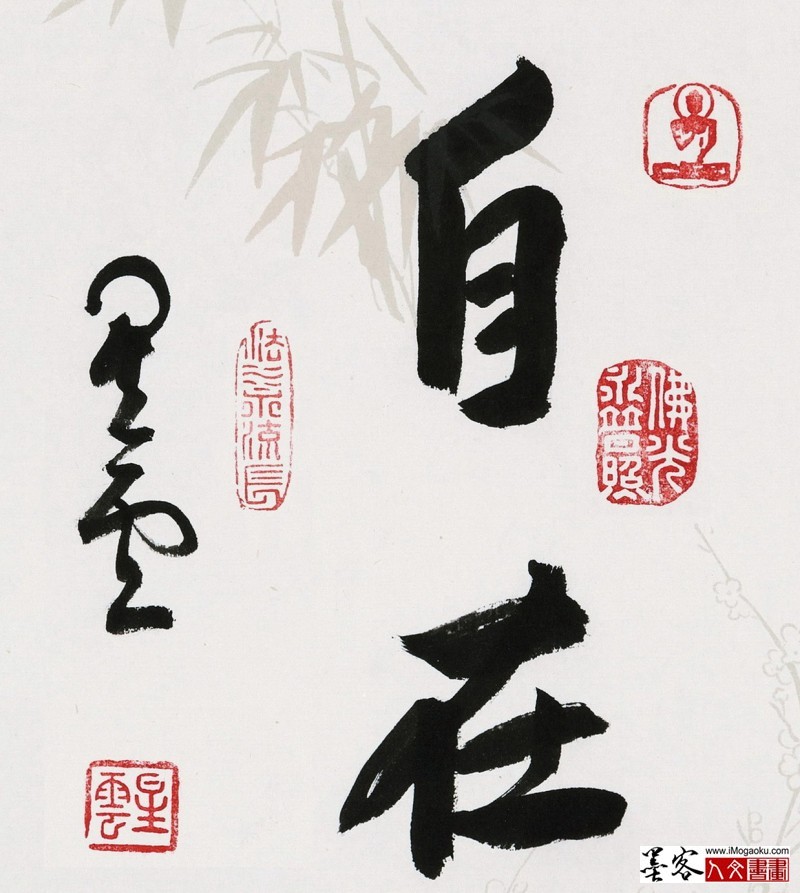 自在
星雲
法水流長
佛光
普照
星雲
墨客
www.iMogaoku.com
人文書畫